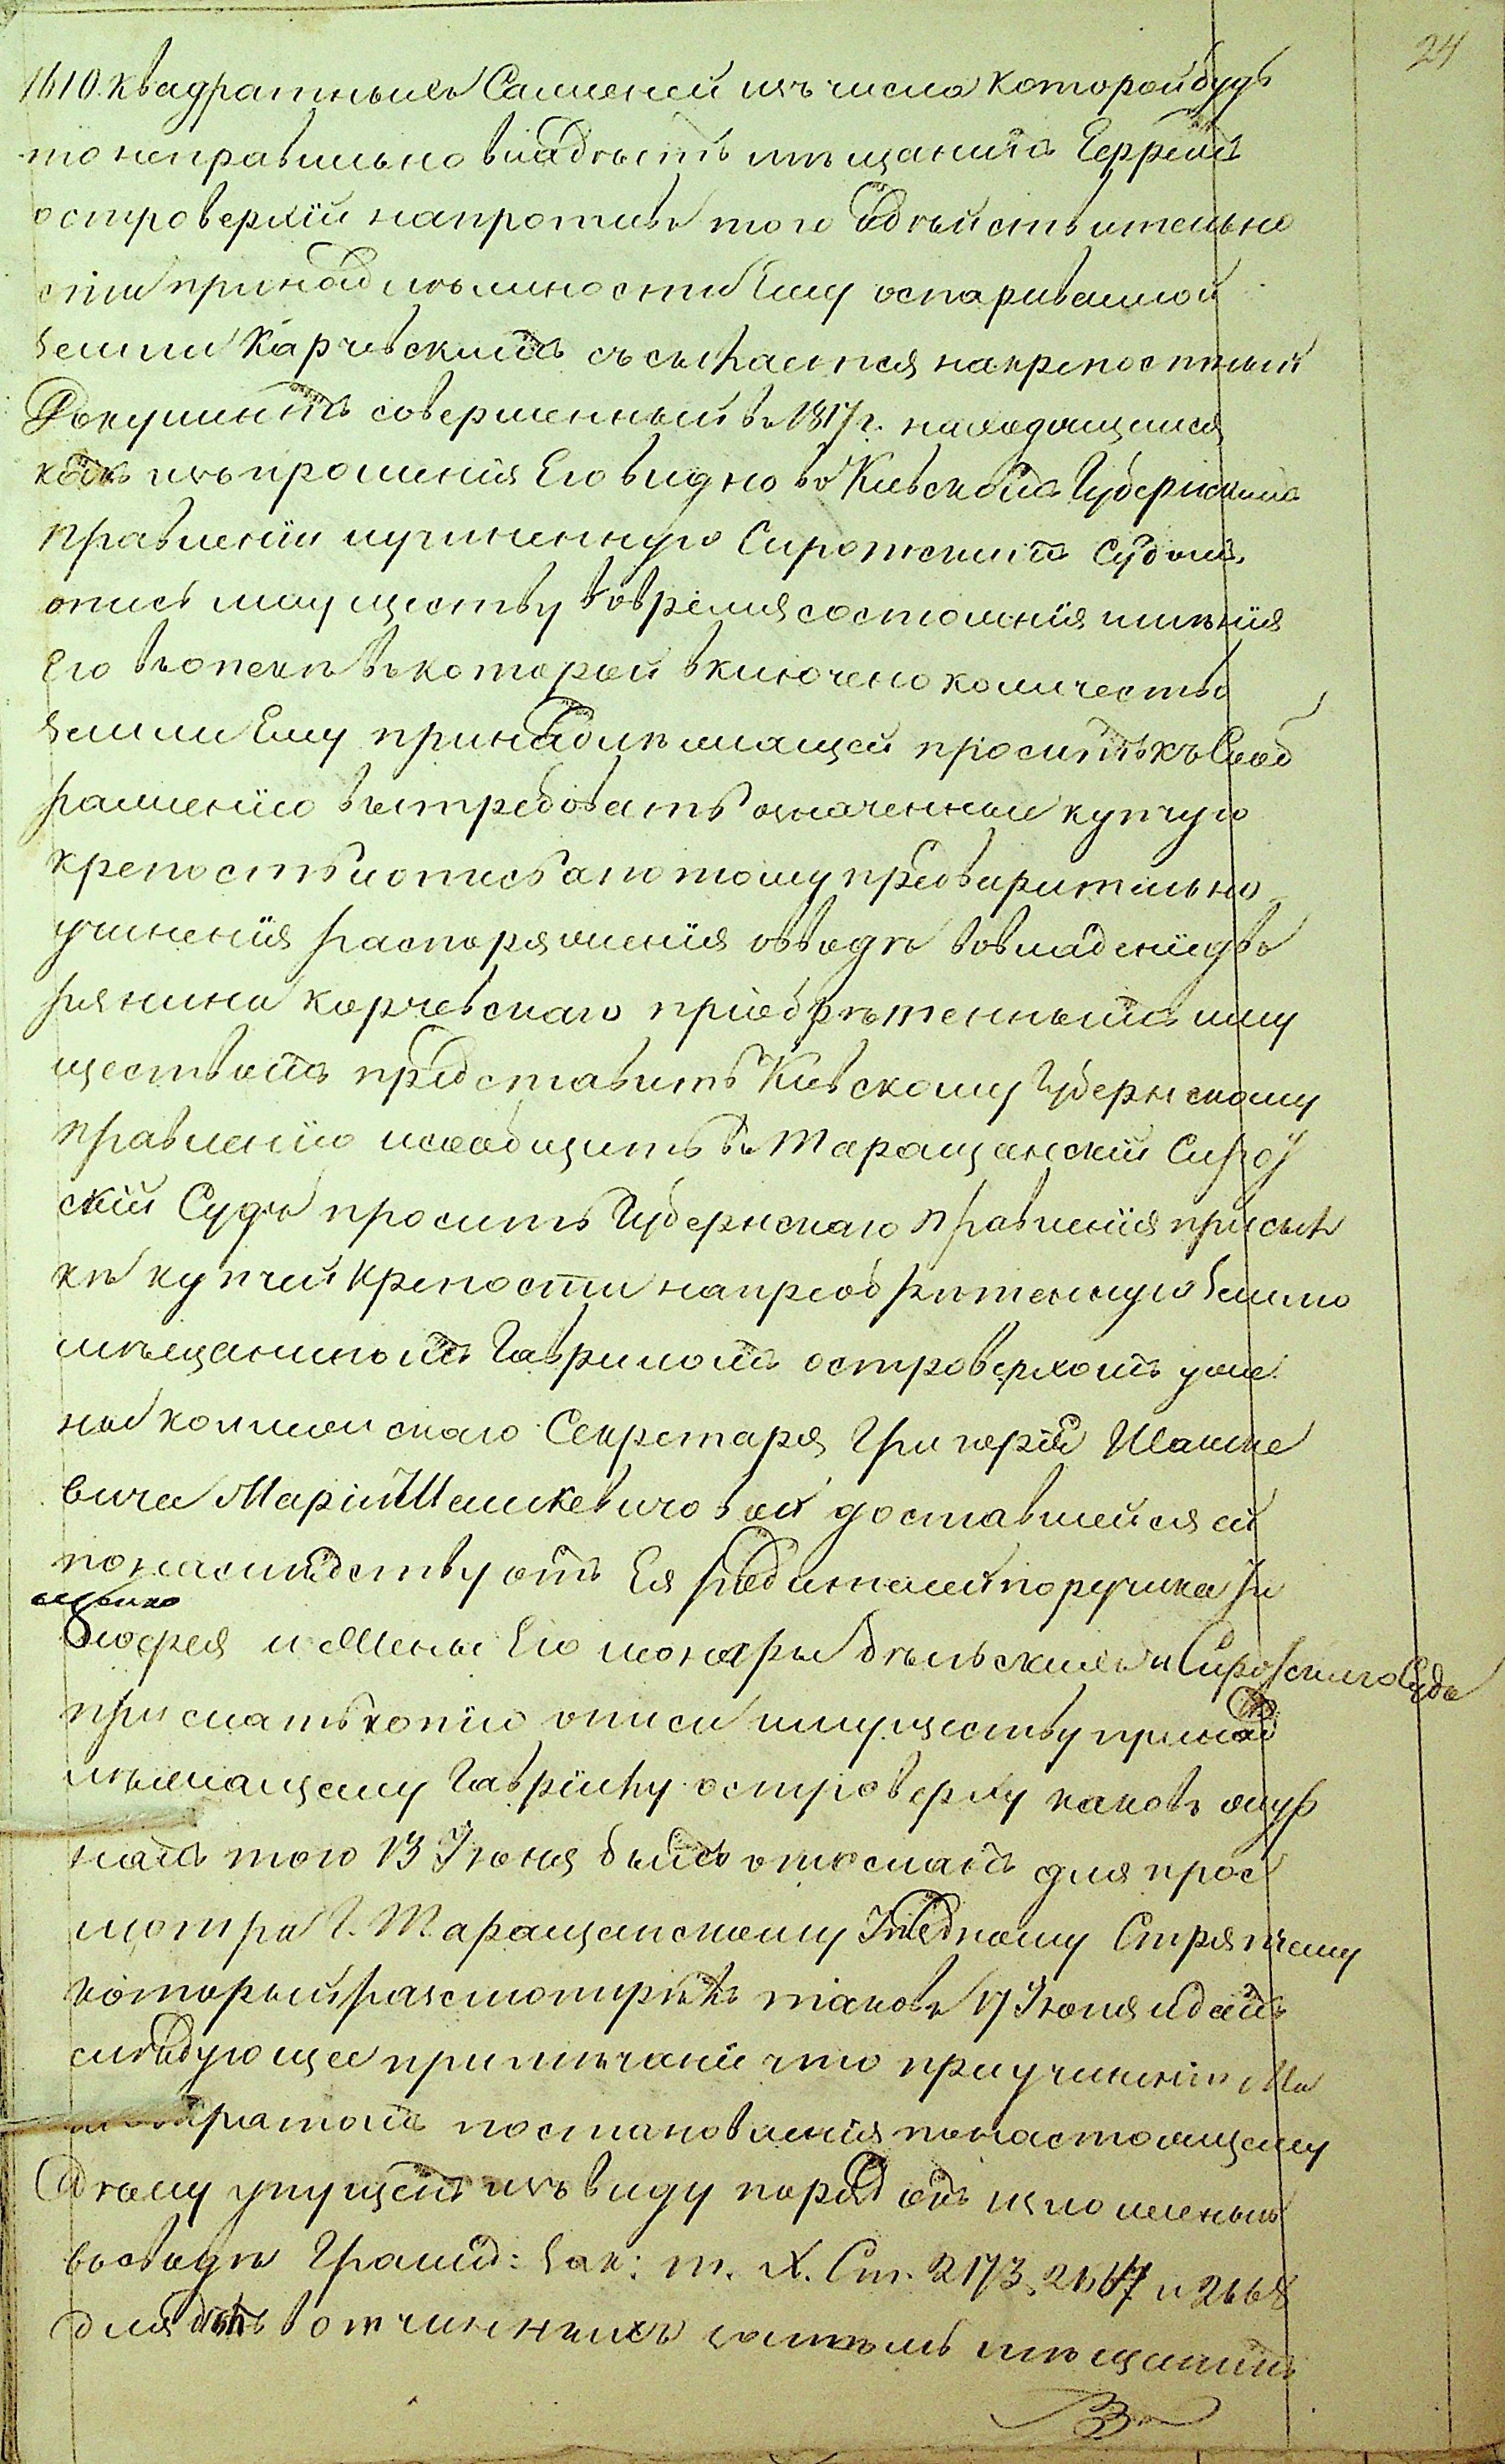 24
1610. квадратныхъ Саженей изъ числа которой будъ
то неправильно владѣетъ мѣщанинъ
островерхій напротивъ того вдѣйствительно
сти принадлѣжности Ему оспариваемой
земли Карчевскимъ съсылается накрепостный
Документъ совершенный въ 1817 г. находящійся
какъ изъ прошенія Его видно въ Кіевскомъ Губернскомъ
Правленіи иучиненную Сиротскимъ Судомъ
опись имуществу вовремя состоянія имѣнія
Его въопекѣ вькоторой включено количество
земли Ему принадлѣжащей проситъ къ
ражению вытребовать означенные купчую
крепость иопись апотому предварительно
учиненія распоряженія овводѣ вовладеніе дво
рянина Карчевскаго пріобрѣтеннымъ иму
ществомъ представить Кіевскому Губернскому
Правленію исообщить въ Таращанскій Сирот
скій Судъ просить Губернскаго Правленія присыл
кѣ купчей крепости напреобритенную землю
мѣщаниномъ Гавриломъ островерхомъ уже
ны коллежскаго Секретаря Григорія Шашке
вича Маріи Шашкевичовой доставшейся ей
понаследству отъ Ея родителей поручика
и Жены Его Сиротского Суда
прислать копію описи имуществу принад
лѣжащему Гаврилу островерху каковъ жур
налъ того 13 Іюня былъ отосланъ для прос
мотра Г. Таращанскому Уѣздному Стряпчему
который разсмотрѣвъ таковъ 17 Іюня идалъ
слѣдующее примѣчаніе что приучиненіи Ма
гистратомъ постановленія понастоящему
Дѣлу упущенъ изъ виду порядокъ изложенный
восводѣ Гражд: Зак: т. X. Ст. 2173, 2167 и 2168
для дѣлъ вотчинныхъ мѣщанинъ